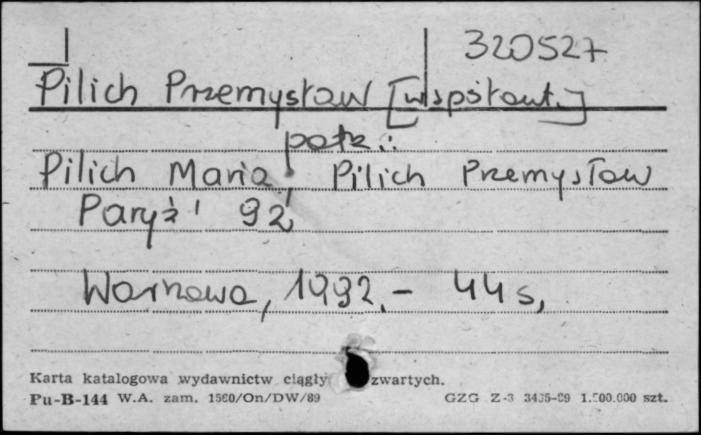 320527
Pilich Przemysław [współaut.]
patrz:
Pilich Maria, Pilich Przemysław
Paryż '92
Warszawa, 1992. - 44 s,
Karta katalogowa wydawnictw ciągły zwartych.
Pu-B-144 W.A. zam. 1560/On/DW/89 GZG Z-3 3435-89 1.500.000 szt.